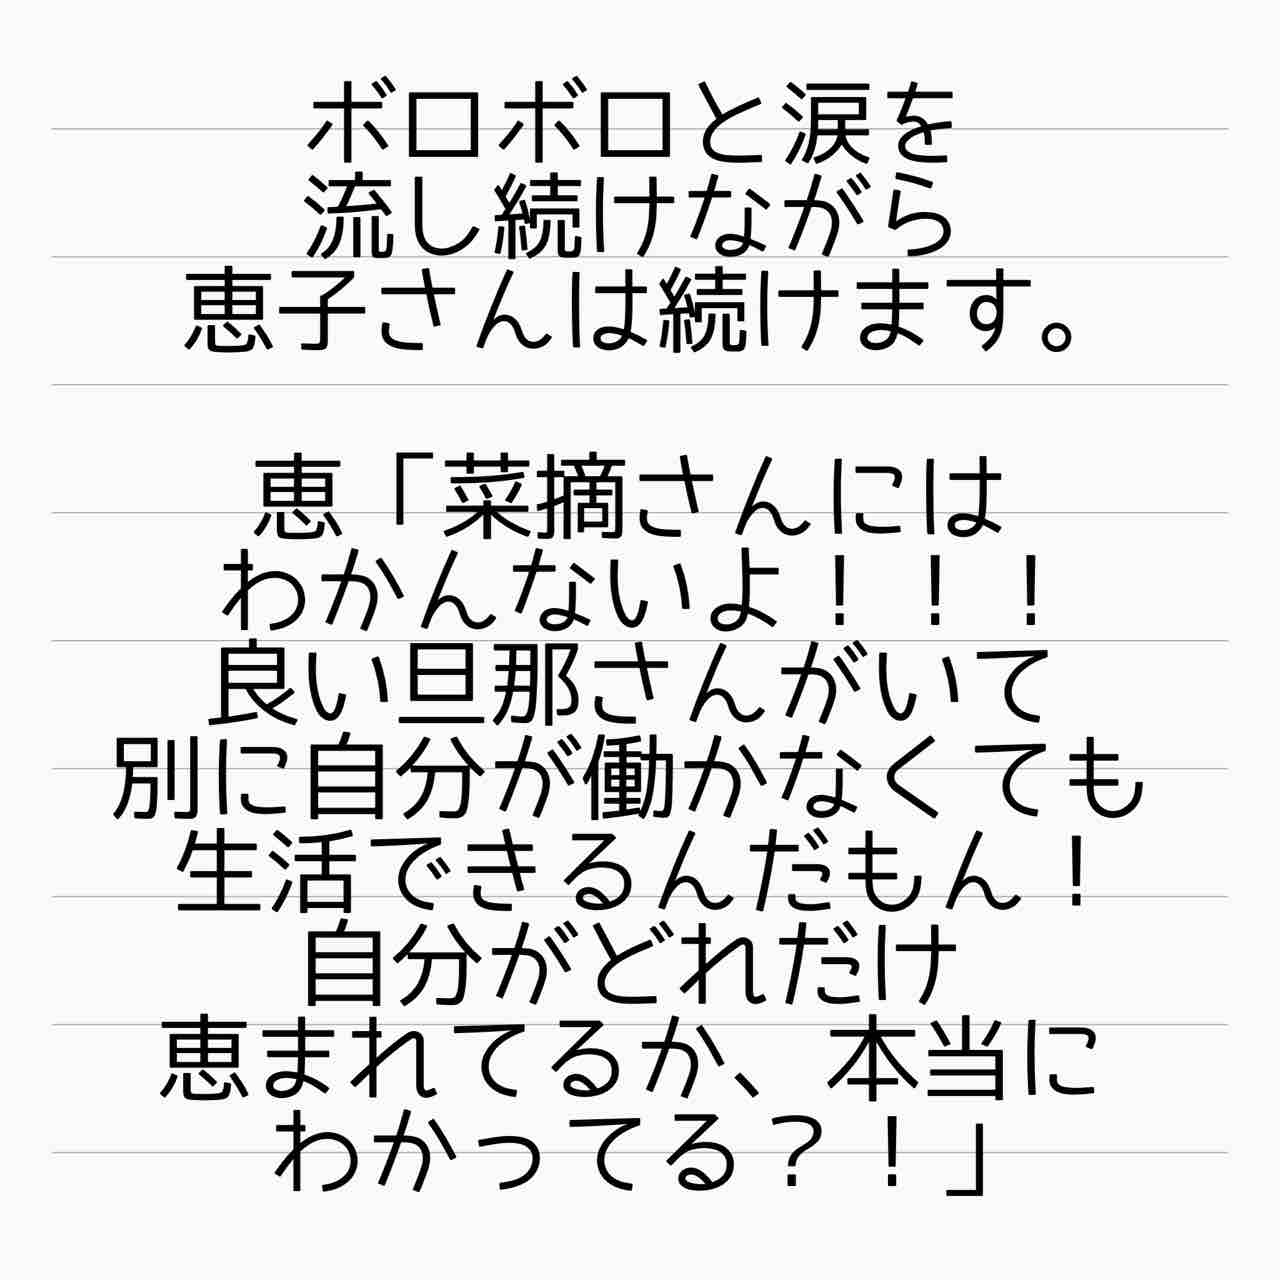 ボロボロと涙を
流し続けながら
恵子さんは続けます。
恵「菜摘さんには
わかんないよ！！！
良い旦那さんがいて
別に自分が働かなくても
生活できるんだもん！
自分がどれだけ
恵まれてるか、本当に
わかってる？！」